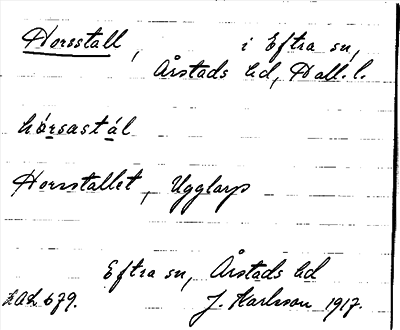 Horsstall, i Eftra sn,
Årstads hd, Hall. l.
hórsastál
Horsstallet, Ugglarp
Eftra sn, Årstads hd
LAL 679. J. Karlsson 1917.